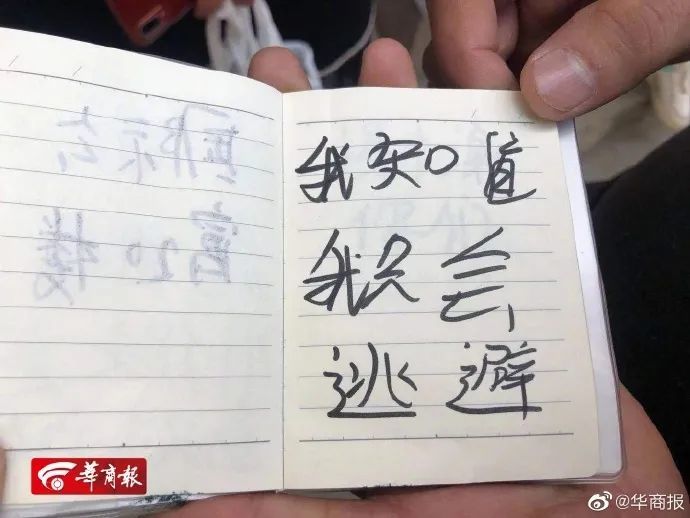 我知道
我只会
逃避
華商報
@华商报